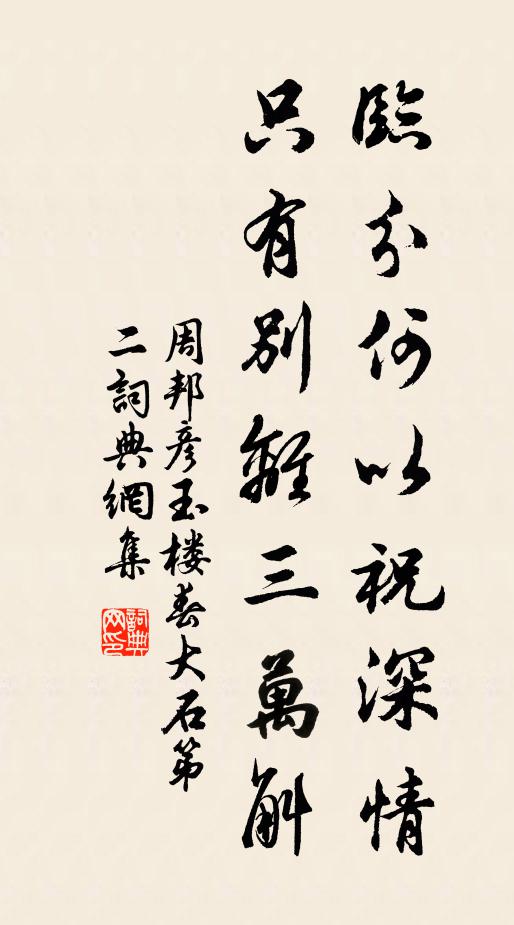 臨分何以祝深情
只有別離三萬斛
周邦彥玉樓春大石第
二詞典網集
詞典
网印